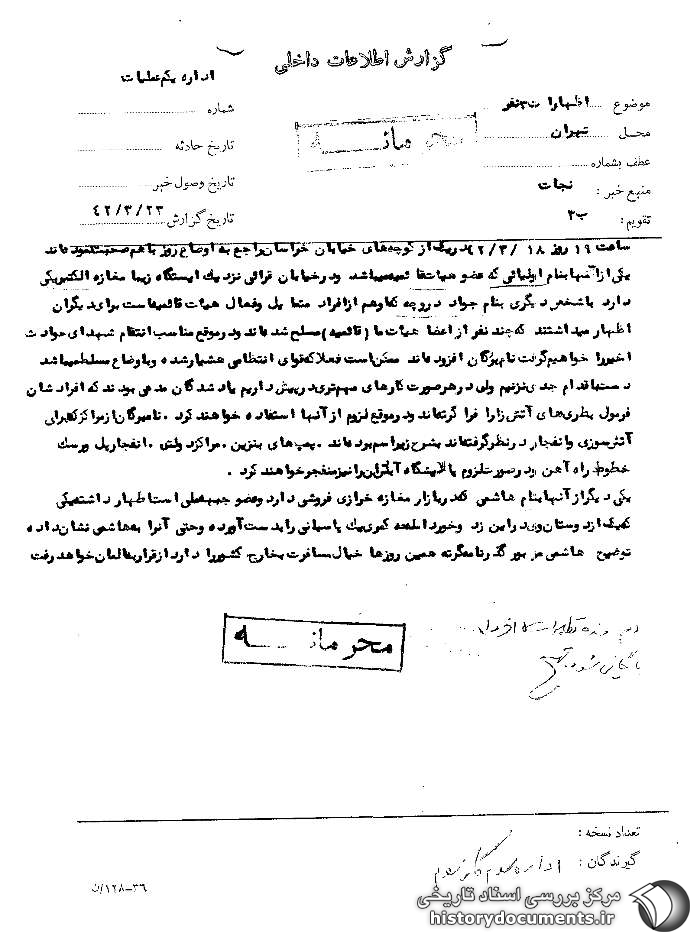 گزارش اطلاعات داخلی
اداره یکم عملیات
موضوع اظهارات سه نفر
محل تهران
عطف بشماره
منبع خبر : نجات
تقویم : ب۲
محرمانه
شماره
تاریخ حادثه
تاریخ وصول خبر
تاریخ گزارش ۴۲/۳/۲۳
ساعت ۱۹ روز ۱۸ /۳/ ۴۲ در یک از کوچه‌های خیابان خراسان راجع به اوضاع روز با هم صحبت نموده‌اند
یکی از آنها بنام اولیائی که عضو هیات قائمیه میباشد و در خیابان نزدیک ایستگاه زیبا مغازه الکتریکی
دارد با شخص دیگری بنام جواد که او هم از افراد متمایل و فعال هیات قائمیه است برای دیگران
اظهار میداشتند که چند نفر از اعضا هیات ما (قائمیه) مسلح شده‌اند و در موقع مناسب انتقام شهدای حوادث
اخیر را خواهیم گرفت نامبردگان افزوده‌اند ممکن است فعلا که قوای انتظامی هشیار شده و باوضاع مسلط میباشد
دست باقدام جدی نزنیم ولی در هر صورت کارهای مهم‌تری در پیش داریم یاد شدگان مدعی بودند که افرادشان
فرمول بطری‌های آتش‌زا را فرا گرفته‌اند و در موقع لزوم از آنها استفاده خواهند کرد . نامبردگان از مراکزی که برای
آتش‌سوزی و انفجار در نظر گرفته‌اند بشرح زیر اسم برده‌اند . پمپ‌های بنزین . مراکز دولتی . انفجار پل ورسک
خطوط راه آهن و در صورت لزوم پالایشگاه آبادان را نیز منفجر خواهند کرد .
یکی دیگر از آنها بنام هاشمی که در بازار مغازه خرازی فروشی دارد و عضو جبهه ملی است اظهار داشته یکی
که یک از دوستان وی در این زد و خورد اسلحه کمری یک پاسبانی را بدست آورده و حتی آنرا به هاشمی نشان داده
توضیح هاشمی مزبور گذرنامه گرفته همین روزها خیال مسافرت بخارج کشور را دارد از قرار بالمان خواهد رفت
محرمانه
بایگانی شود
تعداد نسخه :
گیرندگان : اداره کل سوم
۳۶-۱۲۸/ن
مرکز بررسی اسناد تاریخی
historydocuments.ir